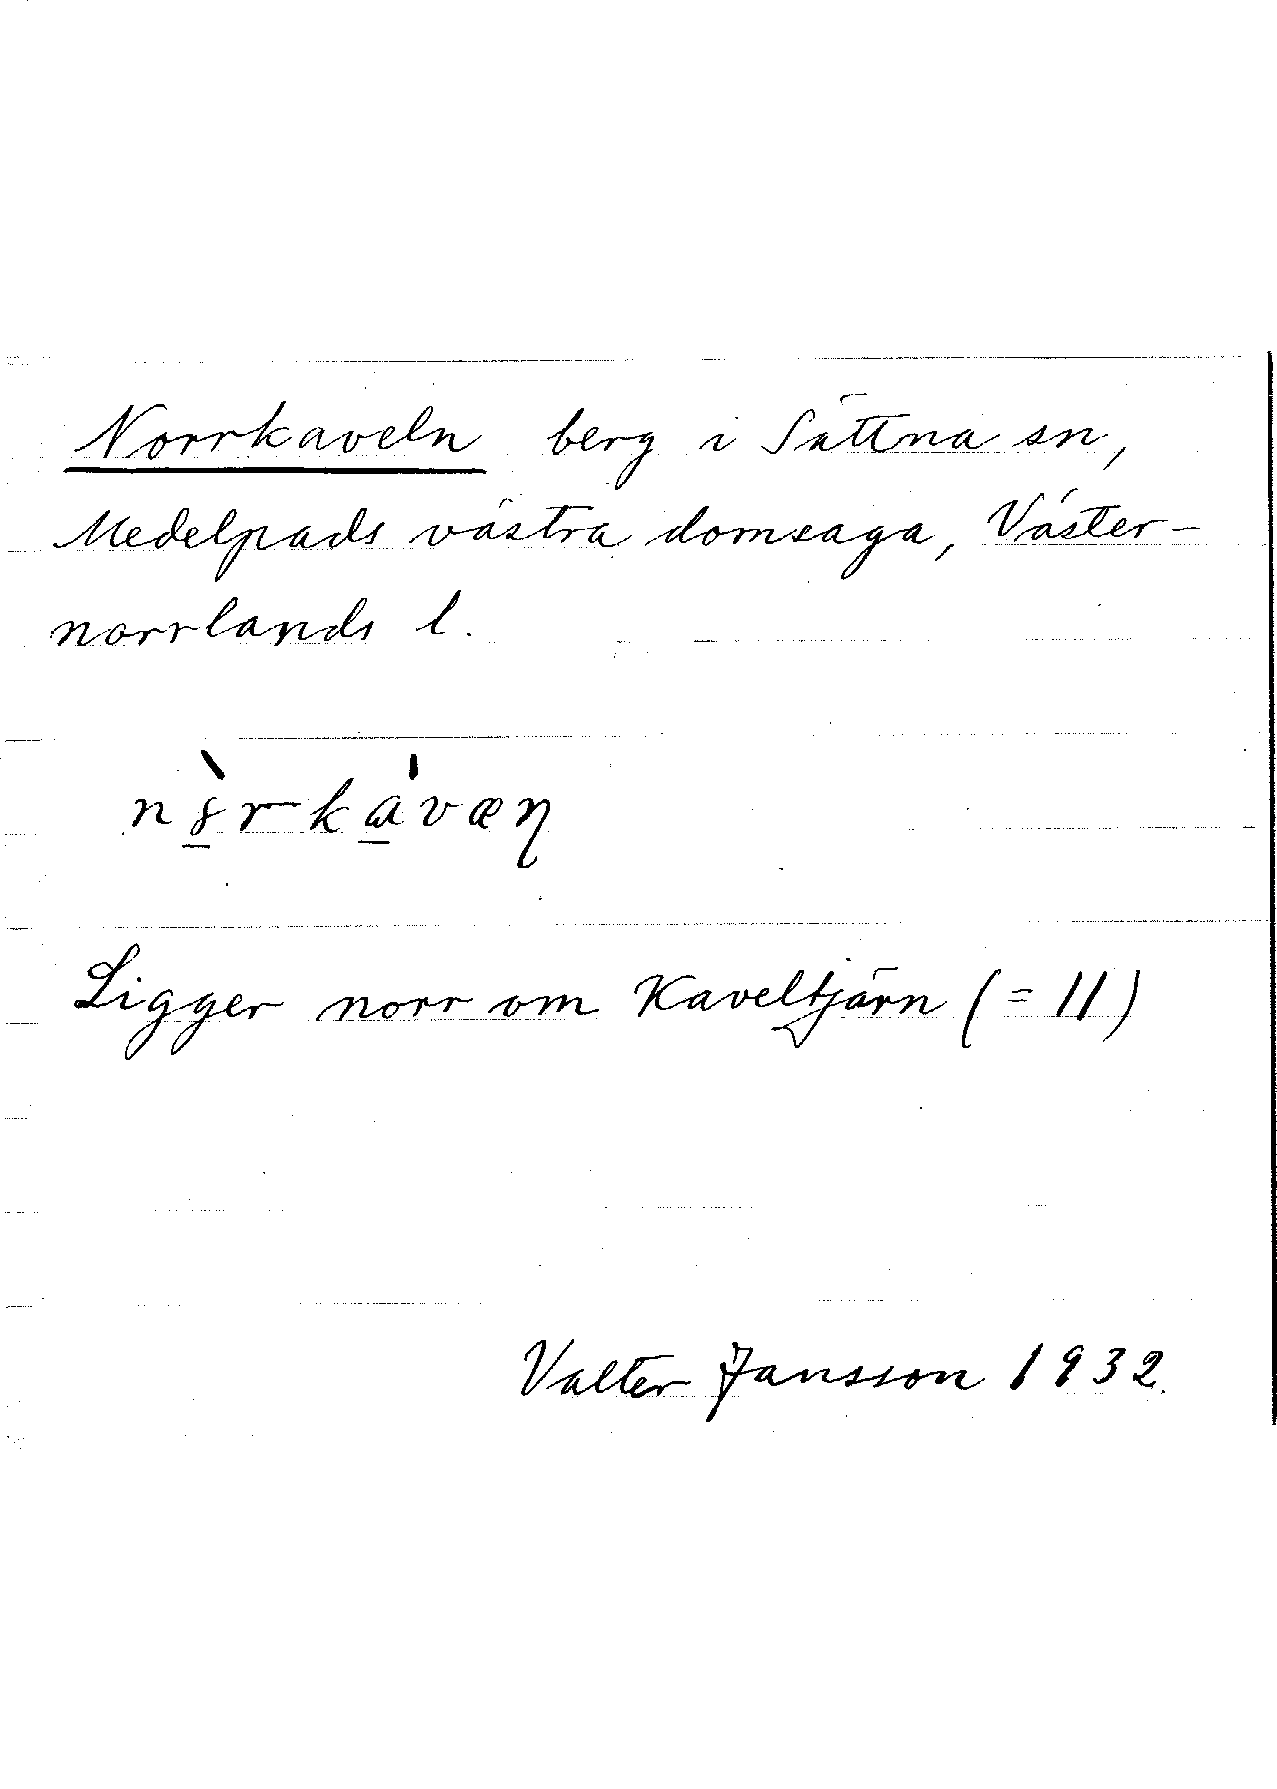 Norrkaveln berg i Sättna sn,
Medelpads västra domsaga, Väster-
norrlands l.
Ligger norr om Kaveltjärn (= 11)
Valter Jansson 1932.